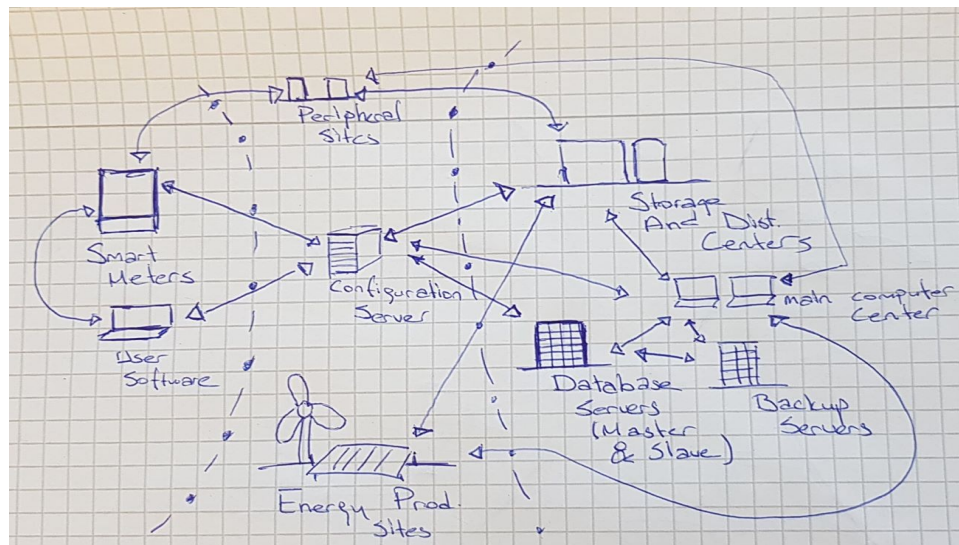 Peripheral
Sites
Storage
And Dist.
Centers
Smart
Meters
Configuration
Server
main computer
Center
User
Software
Database
Servers
(Master
& Slave)
Backup
Servers
Energy Prod.
Sites